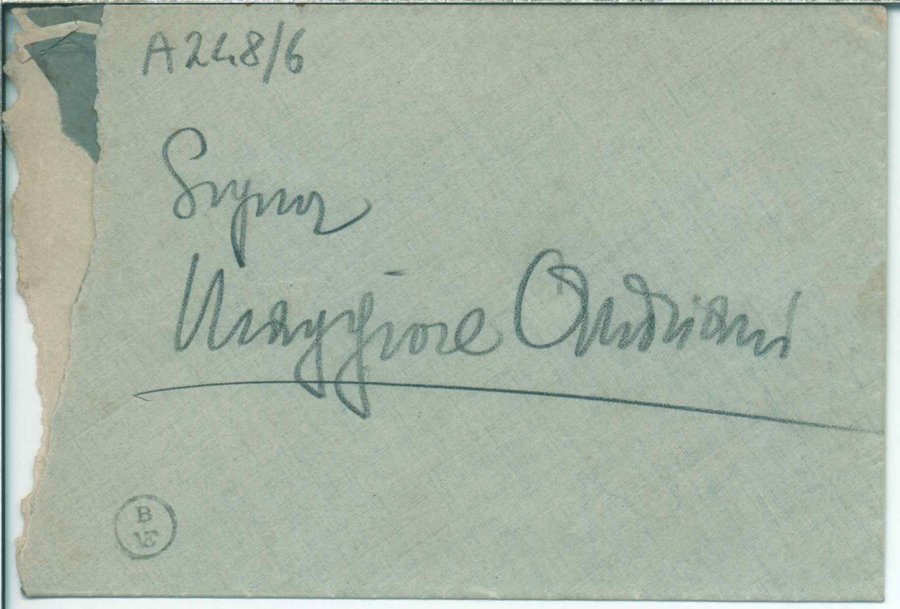 A248/6
Signor
Maggiore Andriani
B
VE